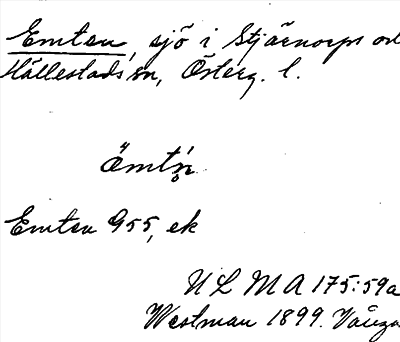 Emten, sjö i Stjärnorps och
Hällestads sn, Österg. l.
ömtn̥
Emten 955, ek
ULMA 175:59a
Westman 1899. Vånga